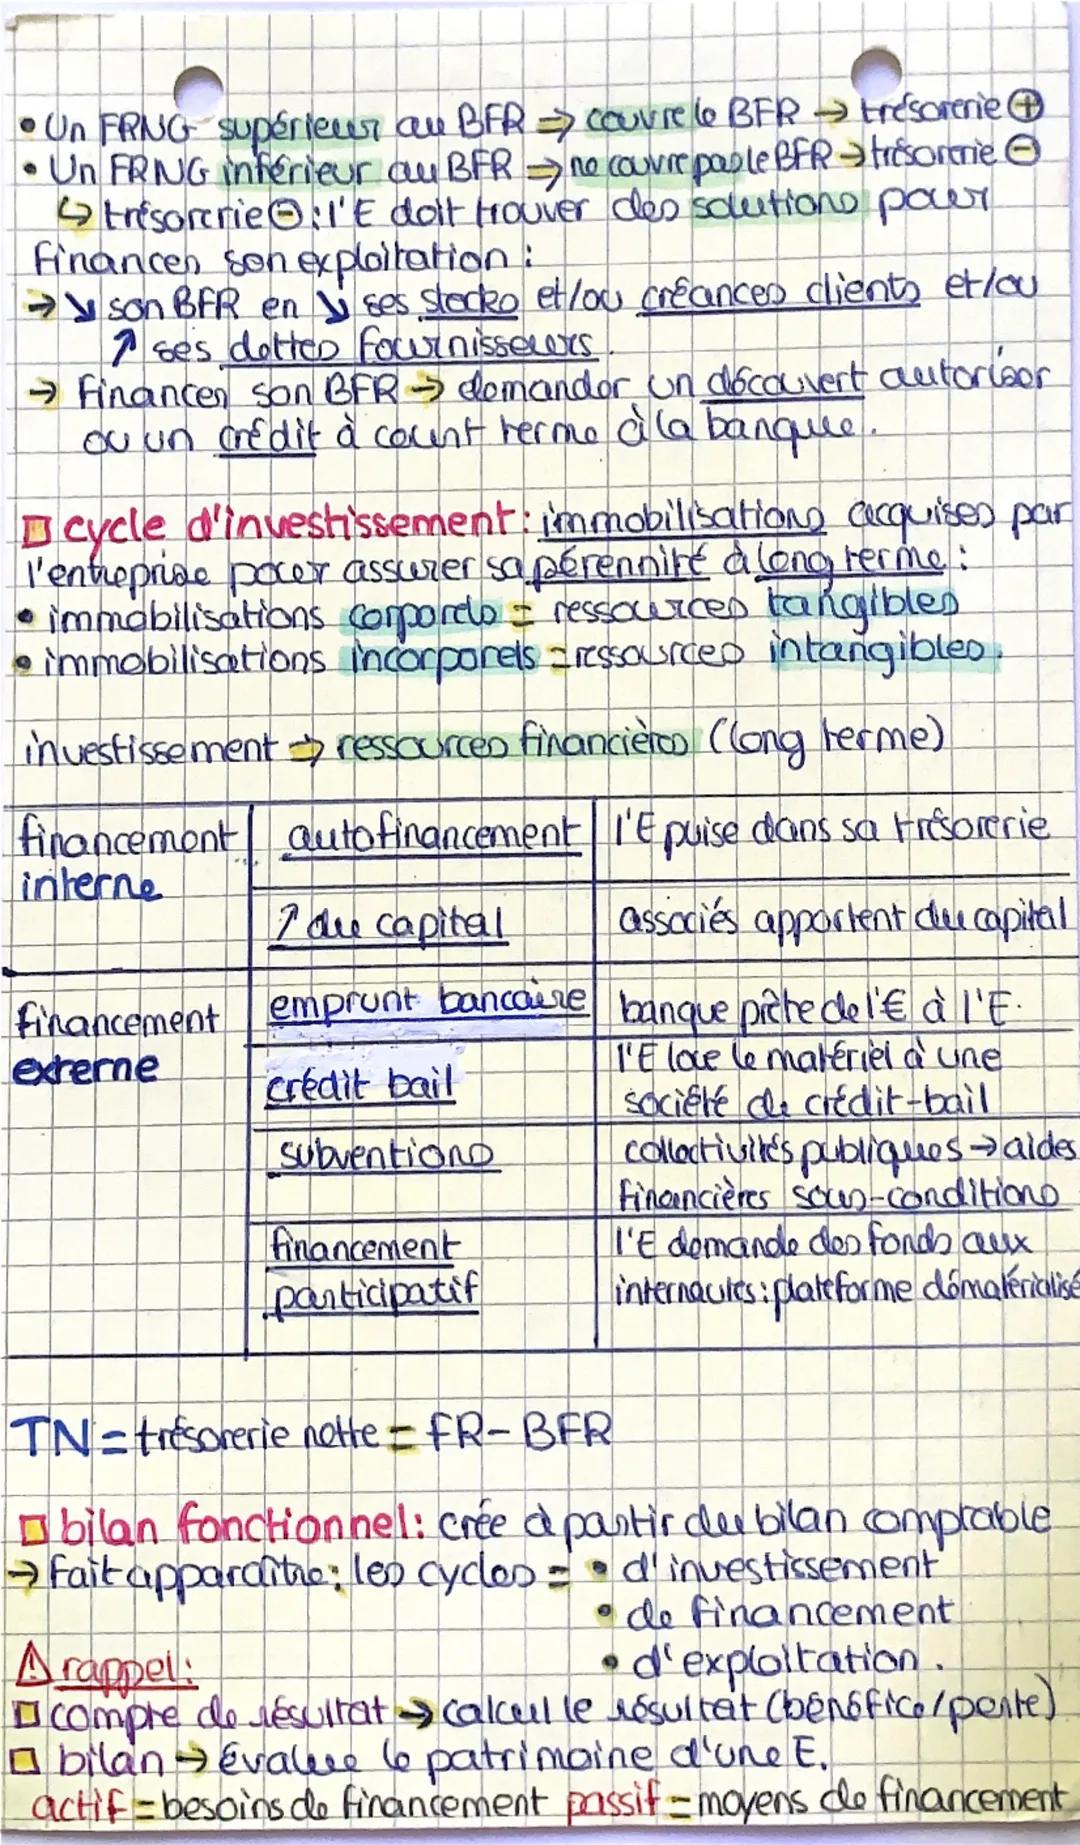 • Un FRNG supérieur au BFR ⇒ couvre le BFR → trésorerie ⊕
• Un FRNG inférieur au BFR ⇒ ne couvre pas le BFR → trésorerie ⊖
↳ trésorerie ⊖ : l'E doit trouver des solutions pour
financer son exploitation :
→ ↘ son BFR en ↘ ses stocks et/ou créances clients et/ou
↗ ses dettes fournisseurs.
→ Financer son BFR → demander un découvert autoriser
ou un crédit à court terme à la banque.
cycle d'investissement : immobilisations acquises par
l'entreprise pour assurer sa pérennité à long terme :
• immobilisations corporels = ressources tangibles
• immobilisations incorporels = ressources intangibles.
investissement ⇒ ressources financières (long terme)
financement autofinancement l'E puise dans sa trésorerie
interne
↗ du capital associés apportent du capital
financement emprunt bancaire banque prête de l'€ à l'E.
externe
crédit bail l'E loue le matériel à une
société de crédit-bail
subventions collectivités publiques → aides
financières sous-conditions
financement l'E demande des fonds aux
participatif internautes : plateforme dématérialisé
TN = trésorerie nette = FR - BFR
bilan fonctionnel : crée à partir du bilan comptable
→ Fait apparaître : les cycles = • d'investissement
• de financement
• d'exploitation.
⚠ rappel :
compte de résultat → calcul le résultat (bénéfice/perte)
bilan → évalue le patrimoine d'une E.
actif = besoins de financement passif = moyens de financement